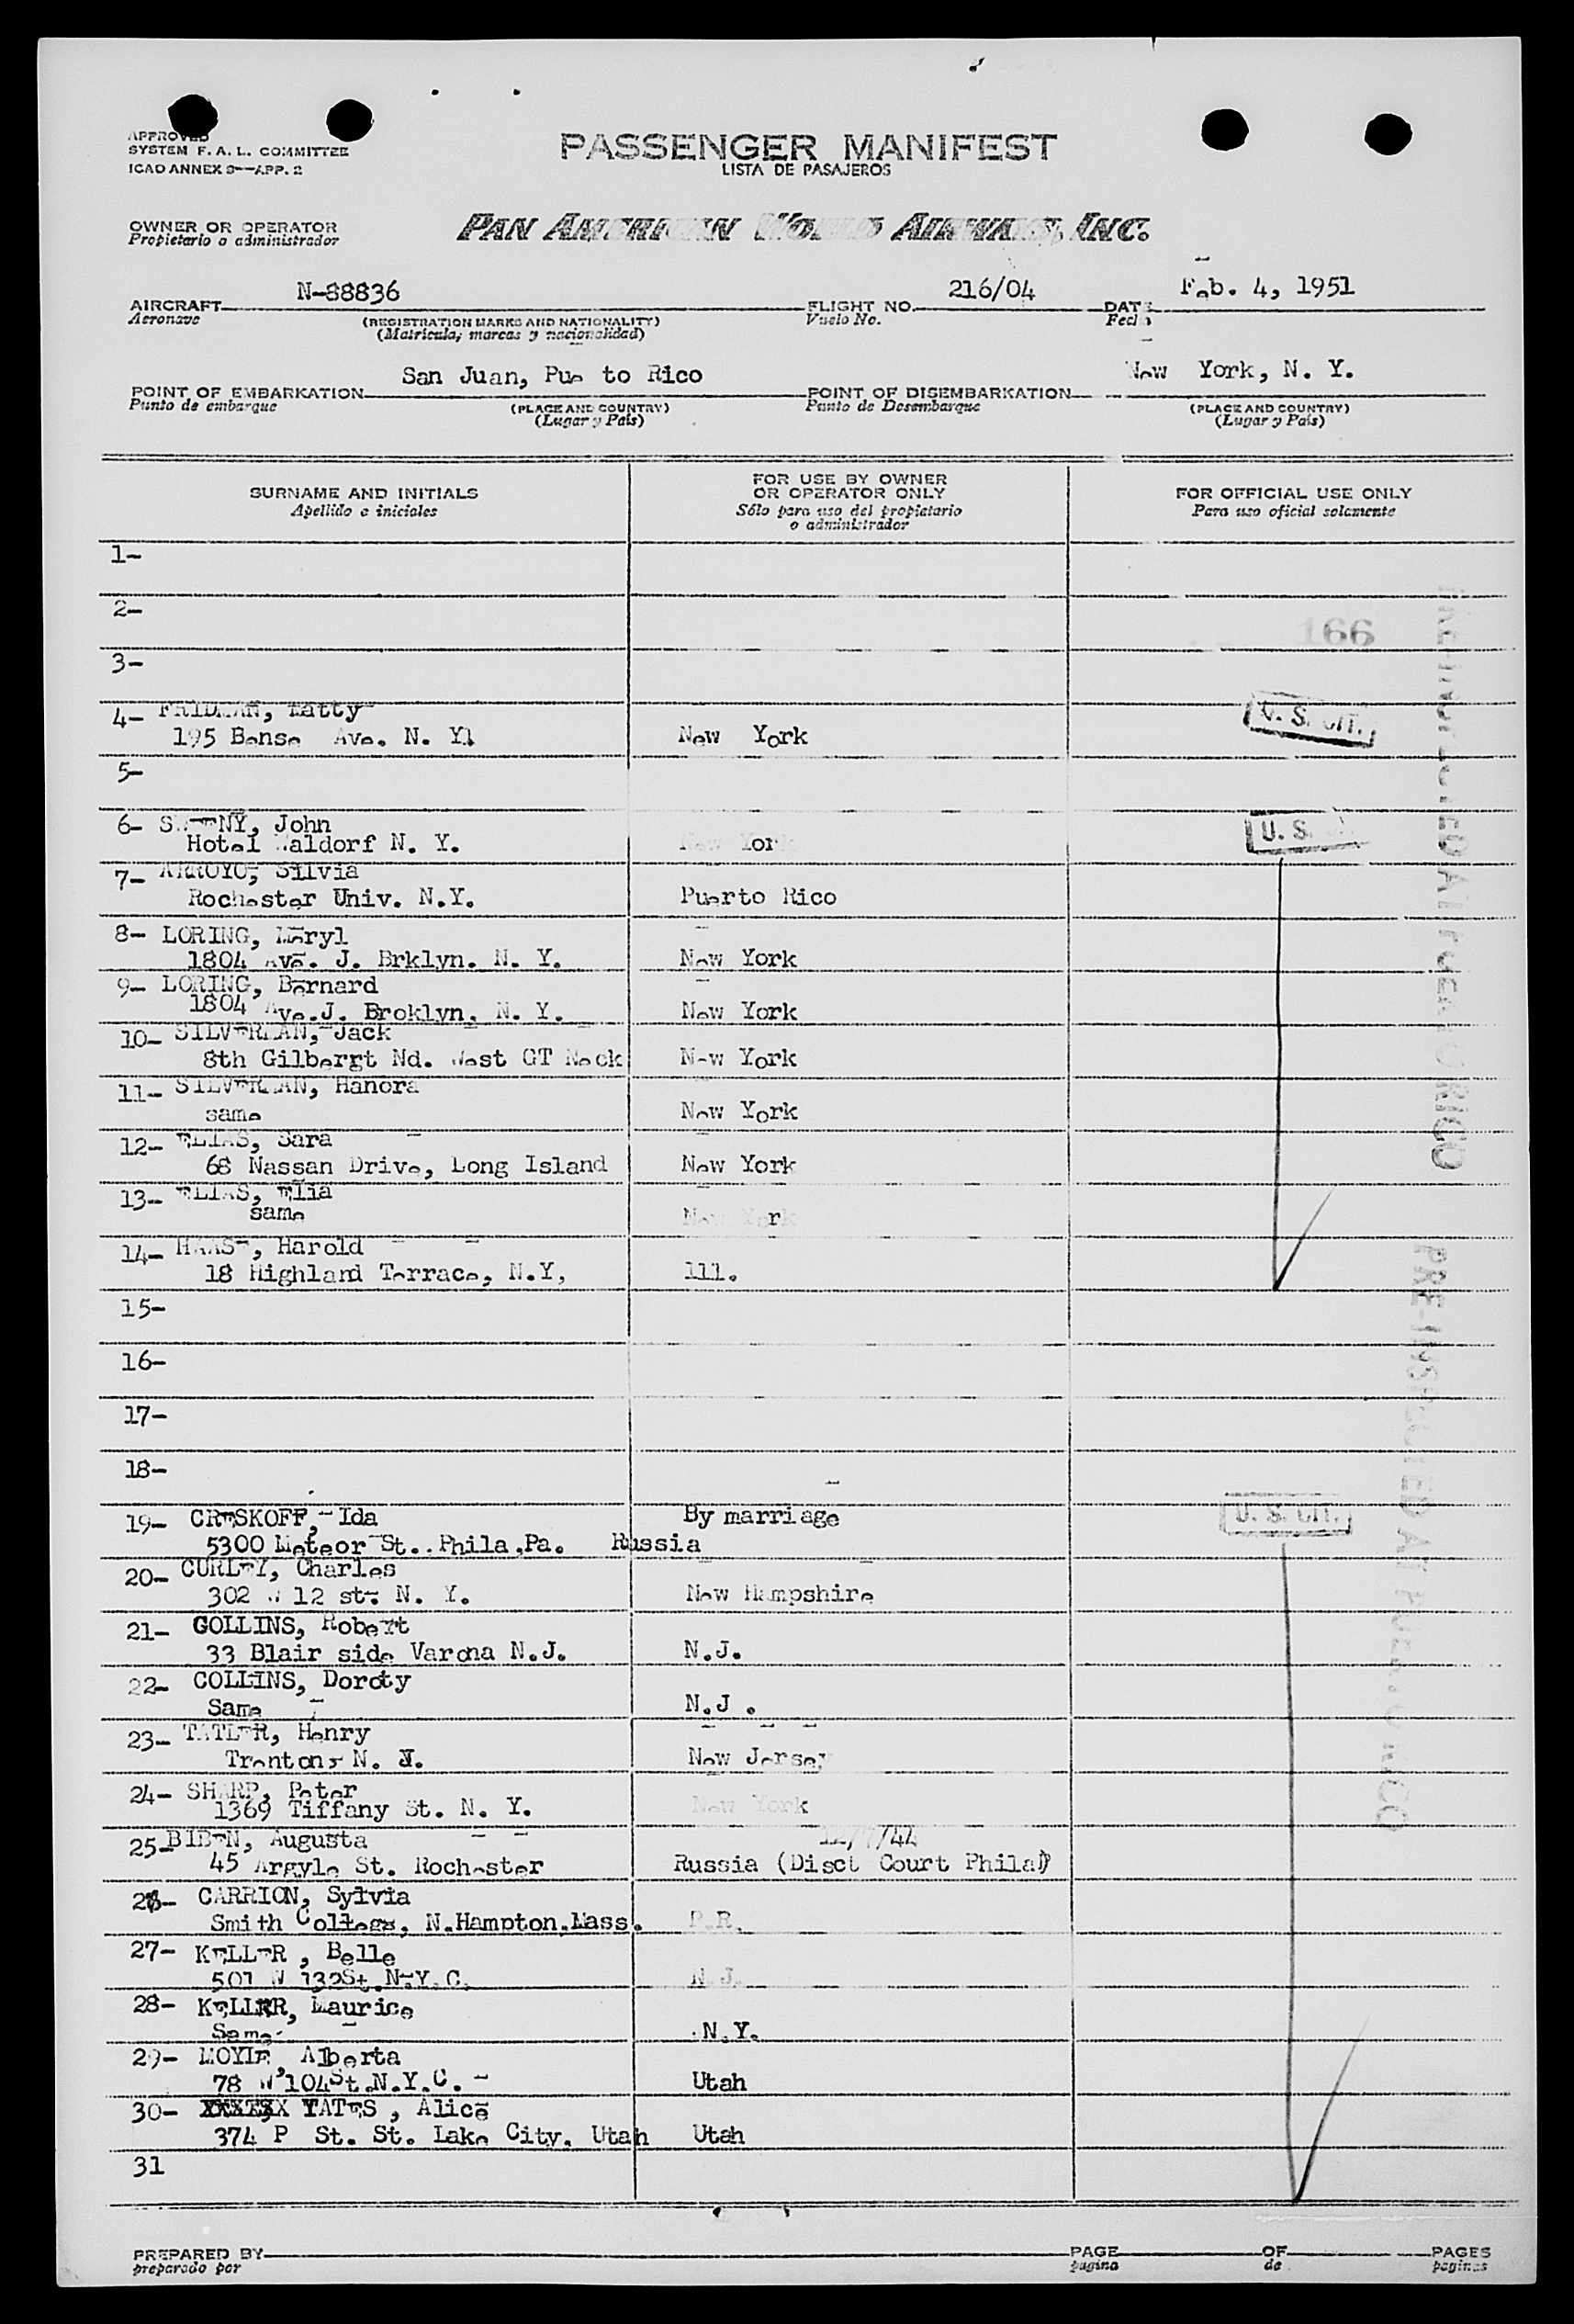 APPROVED
SYSTEM F. A. L. COMMITTEE
ICAO ANNEX 9—APP. 2
PASSENGER MANIFEST
LISTA DE PASAJEROS
OWNER OR OPERATOR
Propietario o administrador
PAN AMERICAN WORLD AIRWAYS, INC.
AIRCRAFT N-88836 FLIGHT NO. 216/04 DATE Feb. 4, 1951
Aeronave (REGISTRATION MARKS AND NATIONALITY) Vuelo No. Fecha
(Matricula, marcas y nacionalidad)
POINT OF EMBARKATION San Juan, Pue to Rico POINT OF DISEMBARKATION New York, N. Y.
Punto de embarque (PLACE AND COUNTRY) Punto de Desembarque (PLACE AND COUNTRY)
(Lugar y País) (Lugar y País)
SURNAME AND INITIALS
Apellido e iniciales
FOR USE BY OWNER
OR OPERATOR ONLY
Sólo para uso del propietario
o administrador
FOR OFFICIAL USE ONLY
Para uso oficial solamente
1-
2-
166
3-
4- FRIDMAN, Matty
195 Ave. N. Y. New York
U. S. CIT.
5-
6- John
Hotel Waldorf N. Y. New York
U. S.
7- ARROYO, Silvia
Rochester Univ. N.Y. Puerto Rico
8- LORING, Meryl
1804 Ave. J. Brklyn. N. Y. New York
9- LORING, Bernard
1804 Ave.J. Broklyn. N. Y. New York
10- SILVERMAN, Jack
8th Gilbergt Nd. West GT Neck New York
11- SILVERMAN, Hanora
same New York
12- ELIAS, Sara
68 Nassan Drive, Long Island New York
13- ELIAS, Elia
same New York
14- HAASE, Harold
18 Highland Terrace, N.Y, Ill.
15-
16-
17-
18-
19- CRESKOFF, Ida By marriage
5300 Meteor St.. Phila,Pa. Russia
U. S. CIT.
20- CURLEY, Charles
302 W 12 st. N. Y. New Hampshire
21- GOLLINS, Robert
33 Blair side Varona N.J. N.J.
22- COLLINS, Doroty
Same N.J .
23- TATLER, Henry
Trenton, N. J. New Jersey
24- SHARP, Peter
1369 Tiffany St. N. Y. New York
25- BIBEN, Augusta
45 Argyle St. Rochester Russia (Disct Court Phila)
26- CARRION, Sylvia
Smith College, N.Hampton.Mass. P.R.
27- KELLER , Belle
501 W 132St. N.Y.C. N.J.
28- KELLER, Maurice
Same N.Y.
29- MOYLE, Alberta
78 W 104St.N.Y.C. Utah
30- YATES , Alice
374 P St. St. Lake City. Utah Utah
31
PRE-INSPECTED AT PUERTO RICO
PRE-INSPECTED AT PUERTO RICO
PREPARED BY PAGE OF PAGES
preparado por pagina de paginas